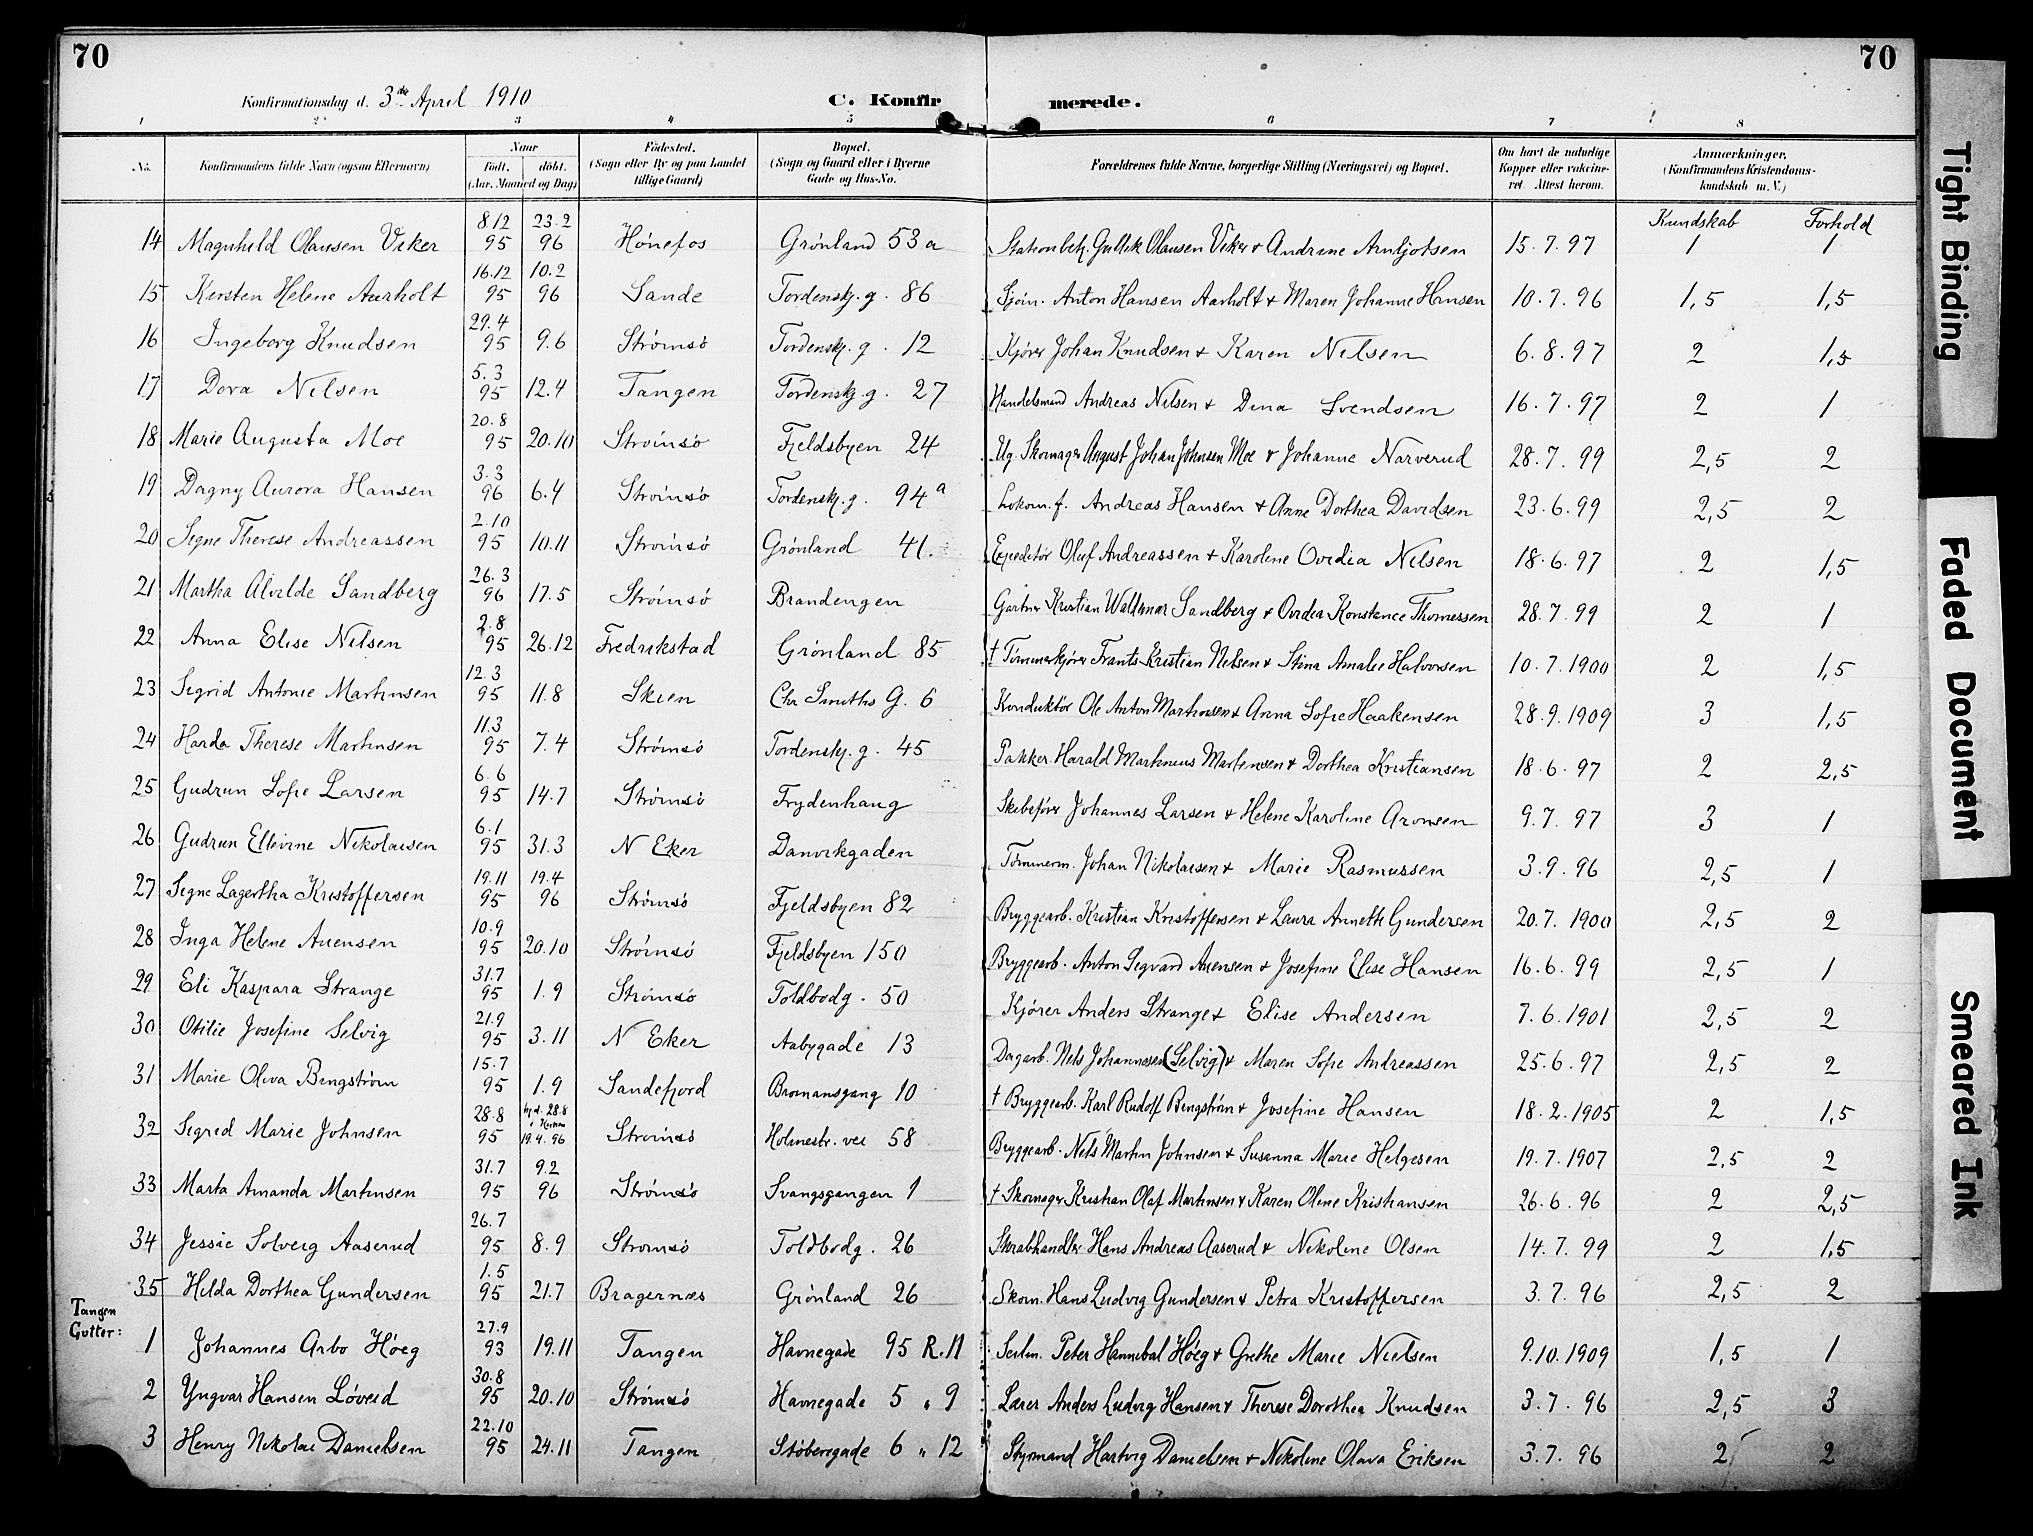 70
70
Konfirmationsdag d. 3die April 1910
C. Konfir merede.
1 2 3 4 5 6 7 8
No. Konfirmandens fulde Navn (ogsaa Efternavn) Naar født, døbt. (Aar, Maaned og Dag) Fødested. (Sogn eller By og paa Landet tillige Gaard) Bopæl. (Sogn og Gaard eller i Byerne Gade og Hus-No. Forældrenes fulde Navne, borgerlige Stilling (Næringsvei) og Bopæl. Om havt de naturlige Kopper eller vakcineret. Attest herom. Anmærkninger. (Konfirmandens Kristendomskundskab m. V.)
Kundskab Forhold
14 Magnhild Olausen Viker 8.12 95 23.2 96 Hönefos Grönland 53a Stationbetj. Gullik Olausen Viker + Andrine Arnljotsen 15.7.97 1 1
15 Kirsten Helene Aarholt 16.12 95 10.2 96 Sande Tordenskj.g. 86 Sjöm. Anton Hansen Aarholt + Maren Johanne Hansen 10.7.96 1,5 1,5
16 Ingeborg Knudsen 29.4 95 9.6 Strömsö Tordenskj.g. 12 Kjörer Johan Knudsen + Karen Nilsen 6.8.97 2 1,5
17 Dora Nilsen 5.3 95 12.4 Tangen Tordenskj.g. 27 Handelsmand Andreas Nilsen + Dina Svendsen 16.7.97 2 1
18 Marie Augusta Moe 20.8 95 20.10 Strömsö Fjeldsbyen 24 Ug. Skomager August Johan Johnsen Moe + Johanne Narverud 28.7.99 2,5 2
19 Dagny Aurora Hansen 3.3 96 6.4 Strömsö Tordenskj.g. 94a Lokom.f. Andreas Hansen + Anne Dorthea Davidsen 23.6.99 2,5 2
20 Signe Therese Andreassen 2.10 95 10.11 Strömsö Grönland 41. Expeditör Oluf Andreassen + Karoline Ovidia Nilsen 18.6.97 2 1,5
21 Martha Alvilde Sandberg 26.3 96 17.5 Strömsö Brandengen Gartner Kristian Waldemar Sandberg + Ovidia Konstance Thomessen 28.7.99 2 1
22 Anna Elise Nilsen 2.8 95 26.12 Fredrikstad Grönland 85 † Tömmerkjörer Frants Kristian Nilsen + Stina Amalie Halvorsen 10.7.1900 2 1,5
23 Sigrid Antonie Martinsen 12.3 95 11.8 Skien Chr Smiths G. 6 Konduktör Ole Anton Martinsen + Anna Sofie Haakensen 28.9.1909 3 1,5
24 Harda Therese Martinsen 11.3 95 7.4 Strömsö Tordenskj.g. 45 Pakker Harald Martinius Martinsen + Dorthea Kristiansen 18.6.97 2 2,5
25 Gudrun Sofie Larsen 6.6 95 14.7 Strömsö Frydenhaug Skibsförer Johannes Larsen + Helene Karoline Aronsen 9.7.97 3 1
26 Gudrun Ellevine Nikolaisen 6.1 95 31.3 N Eker Danvikgaden Tömmerm. Johan Nikolaisen + Marie Rasmussen 3.9.96 2,5 1
27 Signe Lagertha Kristoffersen 19.11 95 19.4 96 Strömsö Fjeldsbyen 82 Bryggearb. Kristian Kristoffersen + Laura Annette Gundersen 20.7.1900 2,5 2
28 Inga Helene Auensen 10.9 95 20.10 Strömsö Fjeldsbyen 150 Bryggearb. Anton Sigvard Auensen + Josefine Elise Hansen 16.6.99 2,5 1
29 Eli Kaspara Strange 31.7 95 1.9 Strömsö Toldbodg. 50 Kjörer Anders Strange + Elise Andersen 7.6.1901 2,5 2
30 Otilie Josefine Selvig 21.9 95 3.11 N Eker Aabygade 13 Dagarb. Nils Johannessen (Selvig) + Maren Sofie Andreassen 25.6.97 2,5 2
31 Marie Oliva Bingström 15.7 95 1.9 Sandefjord Bromansgang 10 † Bryggearb. Karl Rudolf Bingström + Josefine Hansen 18.2.1905 2 1,5
32 Sigrid Marie Johnsen 28.8 95 hj.d. 28.8 i Kirken 19.4.96 Strömsö Holmestr. vei 58 Bryggearb. Nils Martin Johnsen + Susanna Marie Helgesen 19.7.1907 2,5 2
33 Marta Amanda Martinsen 31.7 95 9.2 96 Strömsö Svangsgangen 1 † Skomager Kristian Olaf Martinsen + Karen Oline Kristiansen 26.6.96 2 2,5
34 Jessie Solveig Aaserud 26.7 95 8.9 Strömsö Toldbodg. 26 Skrabhandler Hans Andreas Aaserud + Nikoline Olsen 14.7.99 2 1,5
35 Hilda Dorthea Gundersen 1.5 95 21.7 Bragernæs Grönland 26 Skom. Hans Ludvig Gundersen + Petra Kristoffersen 3.7.96 2,5 2
Tangen
Gutter:
1 Johannes Arbo Höeg 27.9 93 19.11 Tangen Havnegade 95 R.11 Seilm. Peter Hannibal Höeg + Grethe Marie Nielsen 9.10.1909 1,5 1
2 Yngvar Hansen Löveid 30.8 95 20.10 Strömsö Havnegade 5 " 9 Lærer Anders Ludvig Hansen + Therese Dorothea Knudsen 3.7.96 2,5 3
3 Henry Nikolai Danielsen 22.10 95 24.11 Tangen Stöberigade 6 " 12 Styrmand Hartvig Danielsen + Nikoline Olava Eriksen 3.7.96 2 2
Tight Binding
Faded Document
Smeared Ink